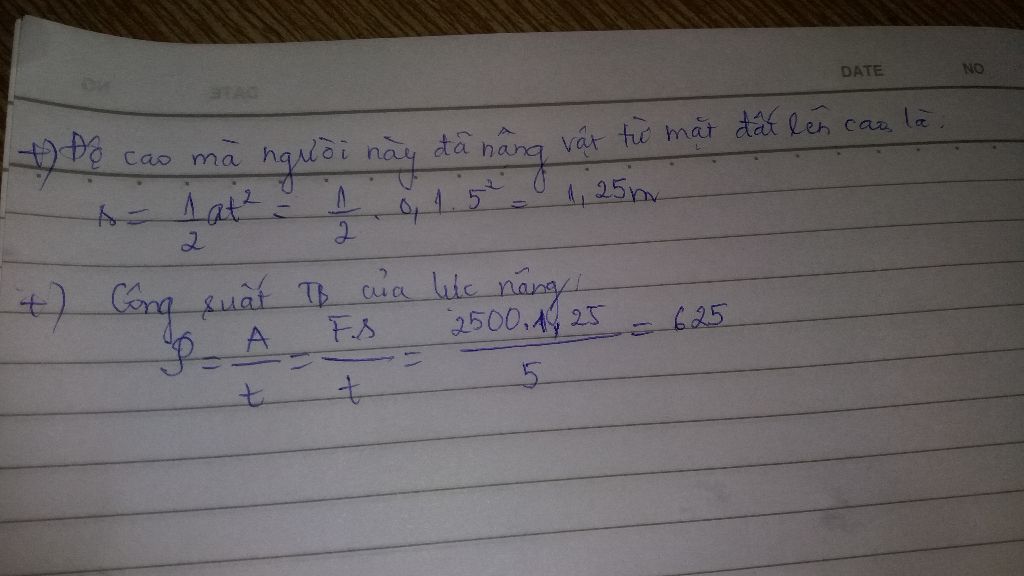 DATE NO
+) Độ cao mà người này đã nâng vật từ mặt đất lên cao là:
s = 1/2 at² = 1/2 . 0,1 . 5² = 1,25m
+) Công suất TB của lực nâng:
𝒫 = A/t = F.s/t = 2500.1,25/5 = 625